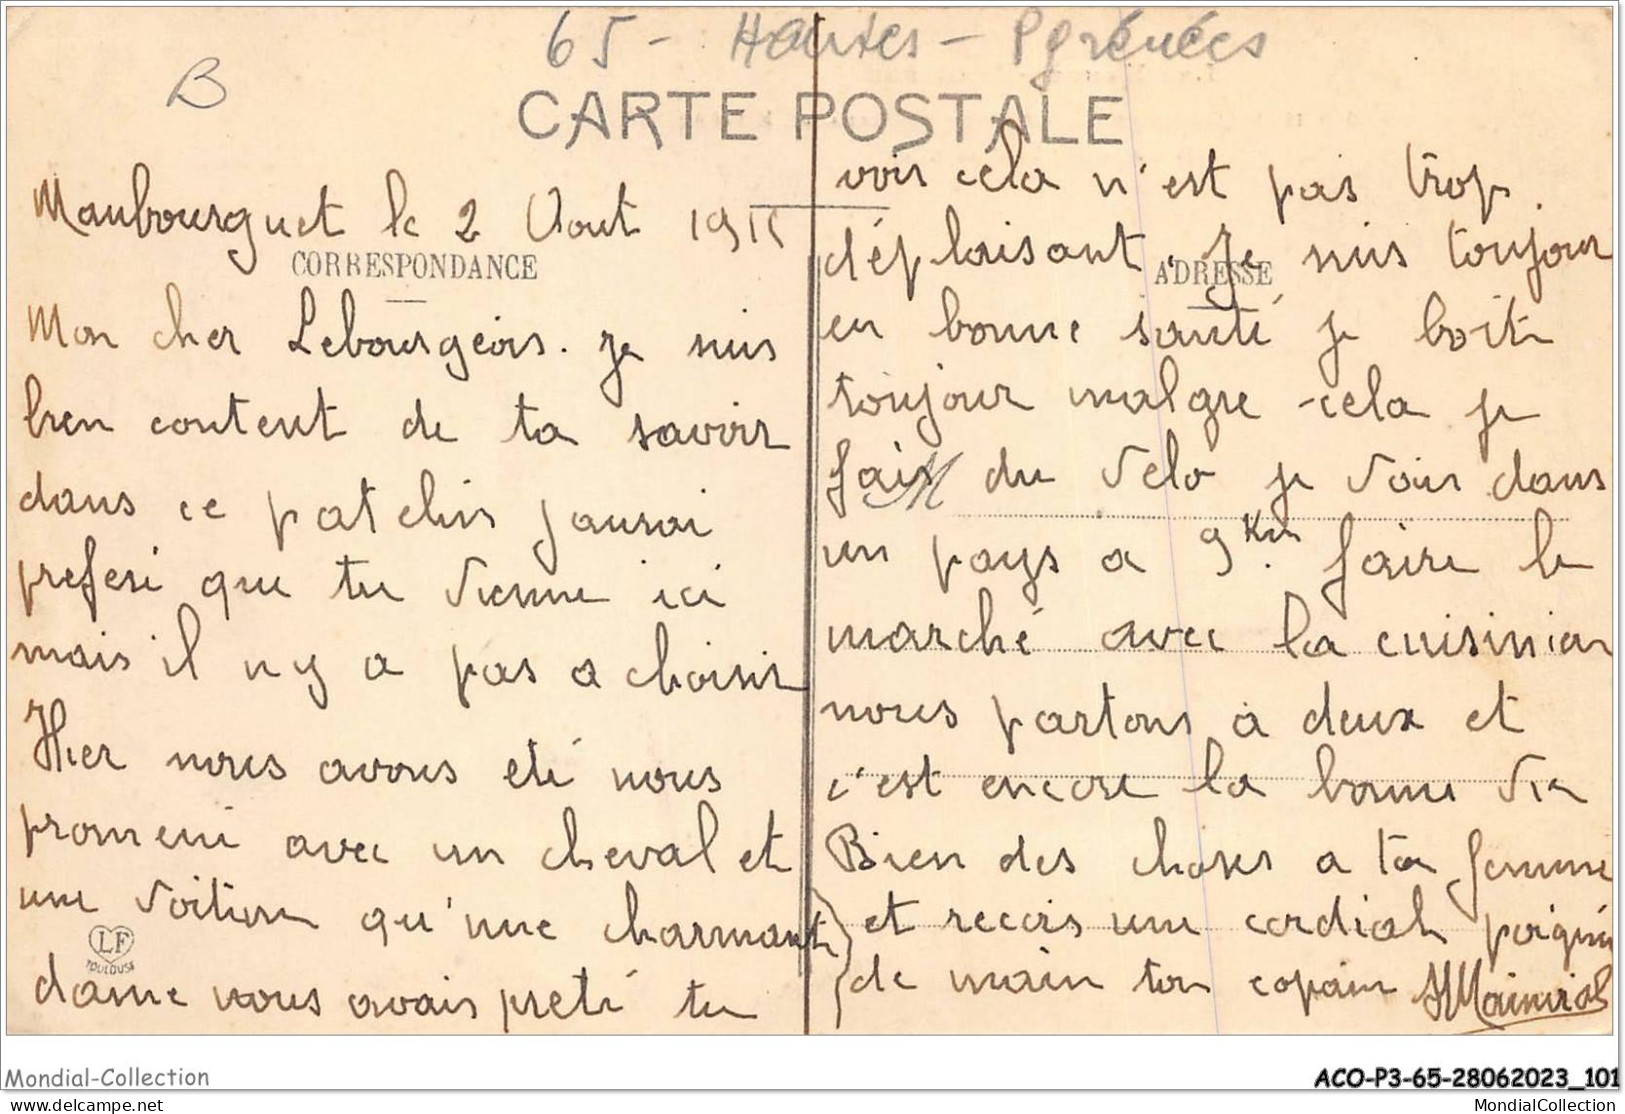 65 - Hautes - Pyrénées
B
CARTE POSTALE
Maubourguet le 2 Aout 1915
CORRESPONDANCE
Mon cher Lebourgeois. Je suis
bien content de ta savoir
dans ce patelin jaurai
preferé que tu vienne ici
mais il n y a pas a choisir
Hier nous avons eté nous
promené avec un cheval et
une voiture qu'une charmante
dame nous avais preté tu
LF
TOULOUSE
vois cela n'est pas trop
déplaisant. Je suis toujour
ADRESSE
en bonne santé je boite
toujour malgre cela je
fais du velo je vois dans
M
un pays a 9 km. faire le
marché avec la cuisinier
nous partons a deux et
c'est encore la bonne vie
Bien des choses a ta femme
et recois une cordiale poigné
de main ton copain
Mondial-Collection
ACO-P3-65-28062023_101
www.delcampe.net
MondialCollection